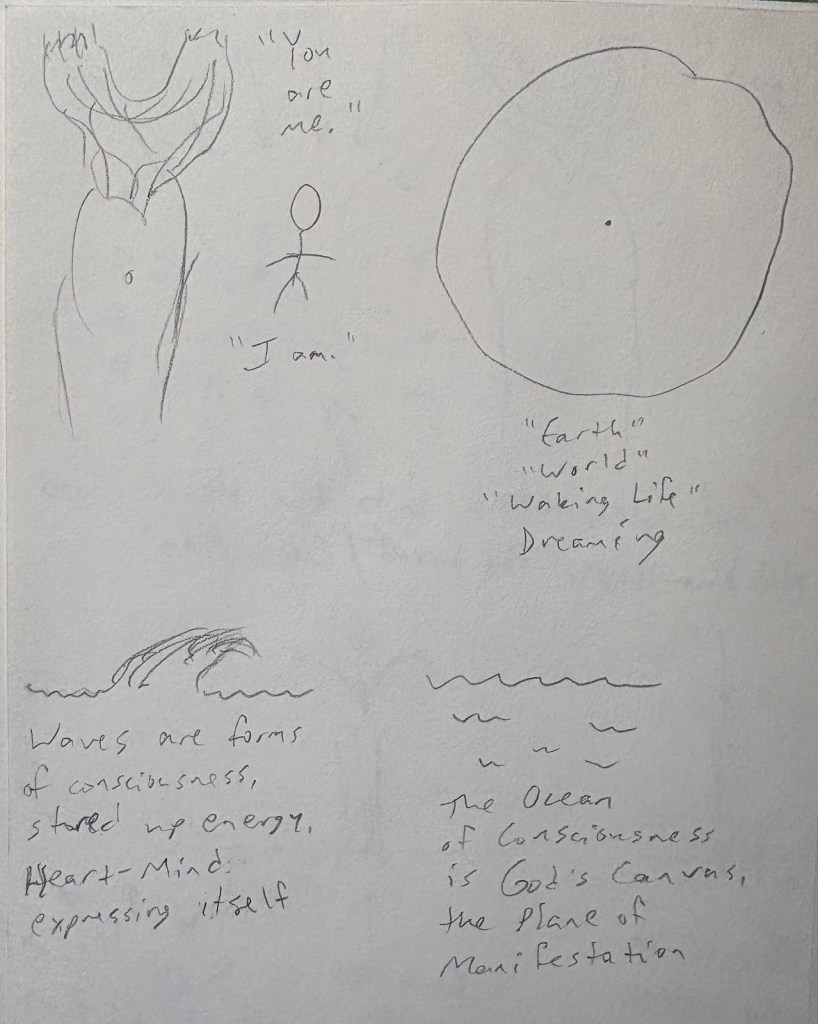 "You
are
me."
"I am."
"Earth"
"World"
"Waking Life"
Dreaming
Waves are forms
of consciousness,
stored up energy,
Heart-Mind
expressing itself
The Ocean
of Consciousness
is God's Canvas,
the Plane of
Manifestation